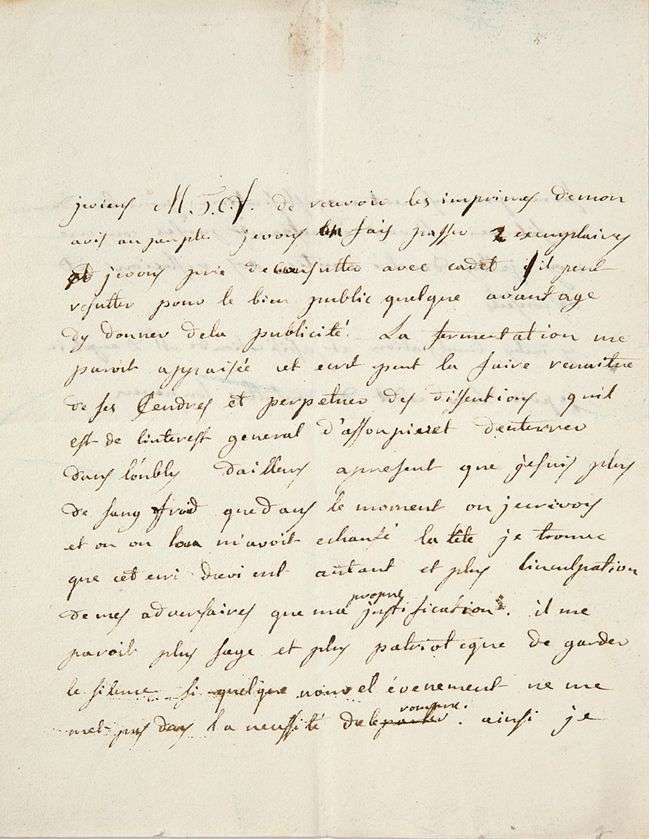 jeviens M.T.C.f. de recevoir les imprimes demon
avis au peuple. jevous en fais passer 2 exemplaires
et jevous prie deconsulter avec cadet s'il peut
resulter pour le bien public quelque avantage
dy donner dela publicité. La fermentation me
paroit appaisée cet ecrit peut la faire renaitre
de ses Cendres et perpetuer des dissentions quil
est de linterest general d'assoupir et denterrer
dans loubly dailleurs apresent que jesuis plus
de sang froid que dans le moment ou jecrivois
et ou on m'avoit echaufé la tete je trouve
que cet ecri devient autant et plus linculpation
de mes adversaires que ma propre justification. il me
paroit plus sage et plus patriotique de garder
le silence si quelque nouvel évenement ne me
met pas dans la necessité dele rompre. ainsi je